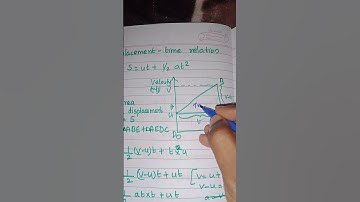 placement-time relation
S = ut + 1/2 at²
Velocity
B
area
displacement
u
t
= S
ABE + AEDC
1/2 (v-u)t + t × u
1/2 (v-u)t + ut [v = u +
v-u =
1/2 at×t + ut